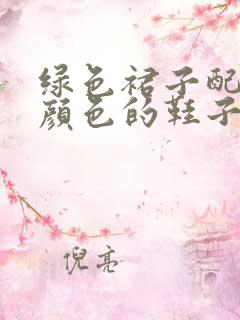 绿色裙子配
颜色的鞋子
倪亮